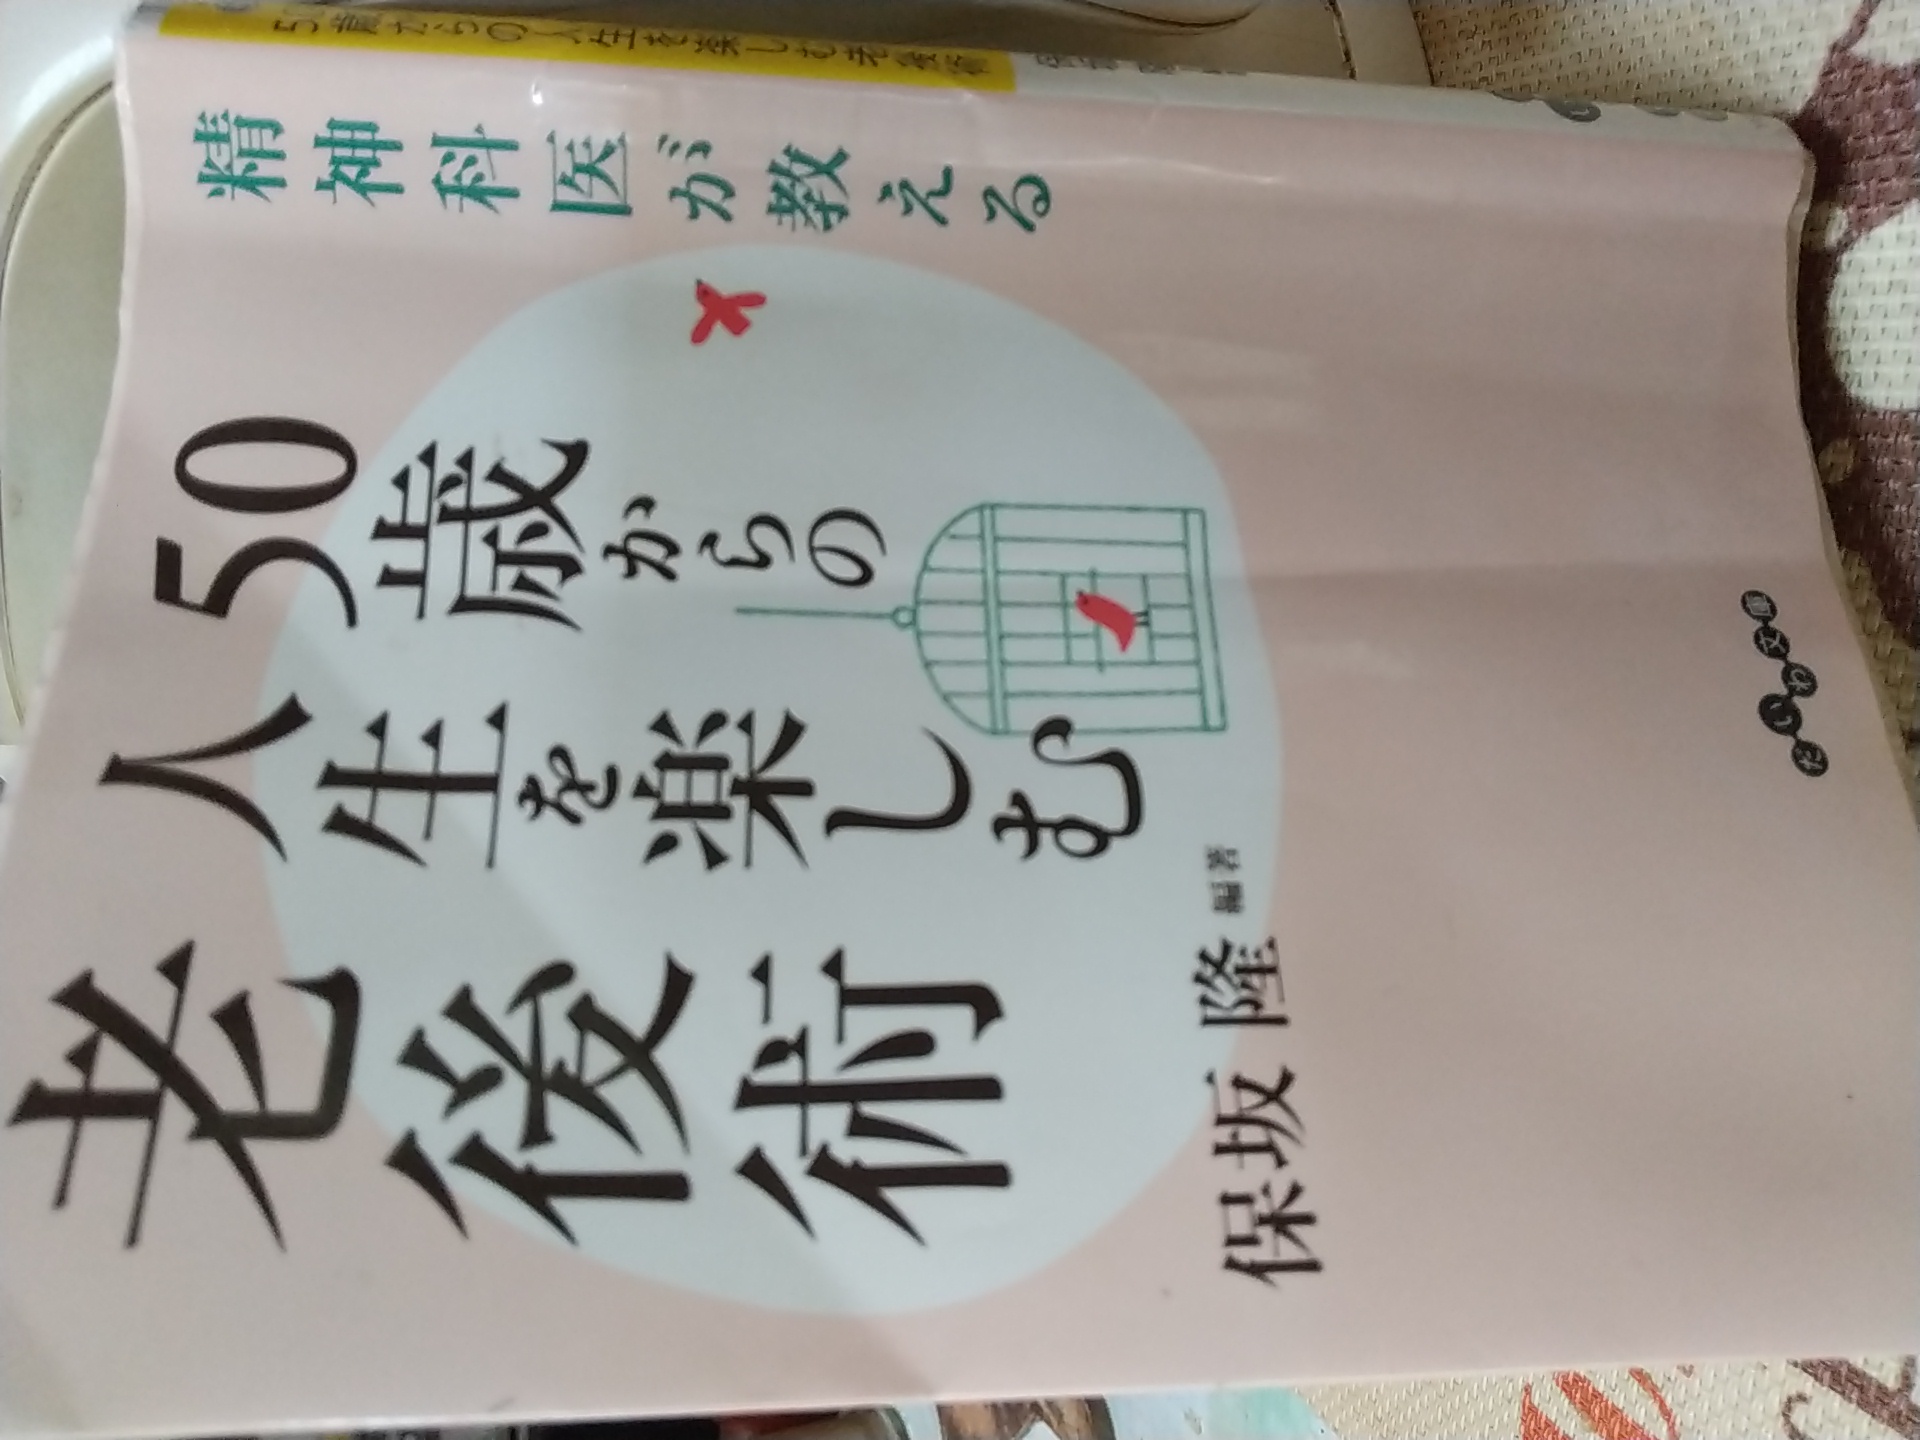 精神科医が教える
50歳からの
人生を楽しむ
老後術
保坂 隆 編著
だいわ文庫
50歳からの人生を楽しむ老後術